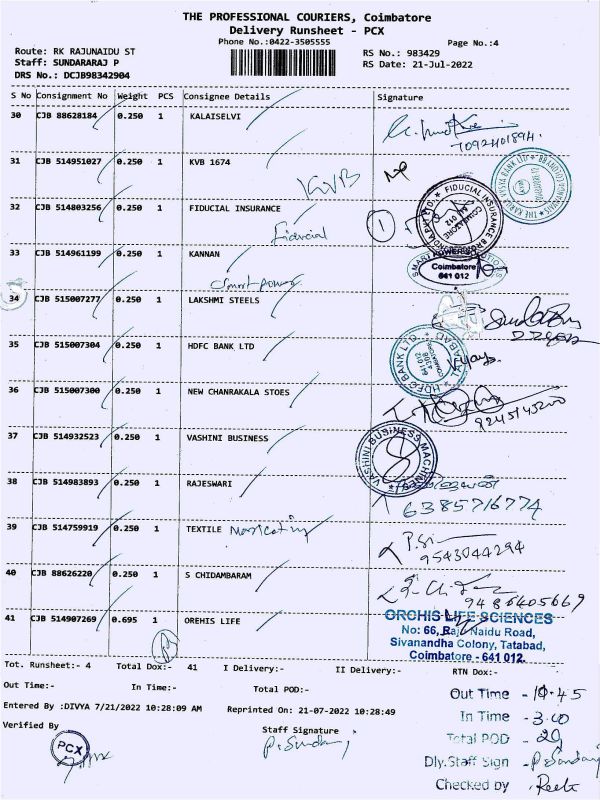 THE PROFESSIONAL COURIERS, Coimbatore
Delivery Runsheet - PCX
Phone No.:0422-3505555
Page No.:4
Route: RK RAJUNAIDU ST
RS No.: 983429
Staff: SUNDARARAJ P
RS Date: 21-Jul-2022
DRS No.: DCJB98342904
S No Consignment No Weight PCS Consignee Details Signature
30 CJB 88628184 0.250 1 KALAISELVI
31 CJB 514951027 0.250 1 KVB 1674
KVB
THE KARUR VYSYA BANK LTD
32 CJB 514803256 0.250 1 FIDUCIAL INSURANCE
Fiducial
1
COIMBATORE
641 012
33 CJB 514961199 0.250 1 KANNAN
Smart power
SMART POWER SOLUTIONS
Coimbatore
641 012
34 CJB 515007277 0.250 1 LAKSHMI STEELS
35 CJB 515007304 0.250 1 HDFC BANK LTD
HDFC BANK LTD.
36 CJB 515007300 0.250 1 NEW CHANRAKALA STOES
9245143200
37 CJB 514932523 0.250 1 VASHINI BUSINESS
VASHINI BUSINESS MACHINES
38 CJB 514983893 0.250 1 RAJESWARI
6385716774
39 CJB 514759919 0.250 1 TEXTILE
9543044294
40 CJB 88626220 0.250 1 S CHIDAMBARAM
9486405669
41 CJB 514907269 0.695 1 OREHIS LIFE
ORCHIS LIFE SCIENCES
No: 66, Raju Naidu Road,
Sivanandha Colony, Tatabad,
Coimbatore - 641 012.
Tot. Runsheet:- 4 Total Dox:- 41 I Delivery:- II Delivery:- RTN Dox:-
Out Time:- In Time:- Total POD:-
Out Time - 10.45
Entered By :DIVYA 7/21/2022 10:28:09 AM Reprinted On: 21-07-2022 10:28:49
In Time - 3.00
Verified By Staff Signature
PCX
P. Sundaraj
Total POD - 29
Dly. Staff Sign - P. Sundaraj
Checked by -